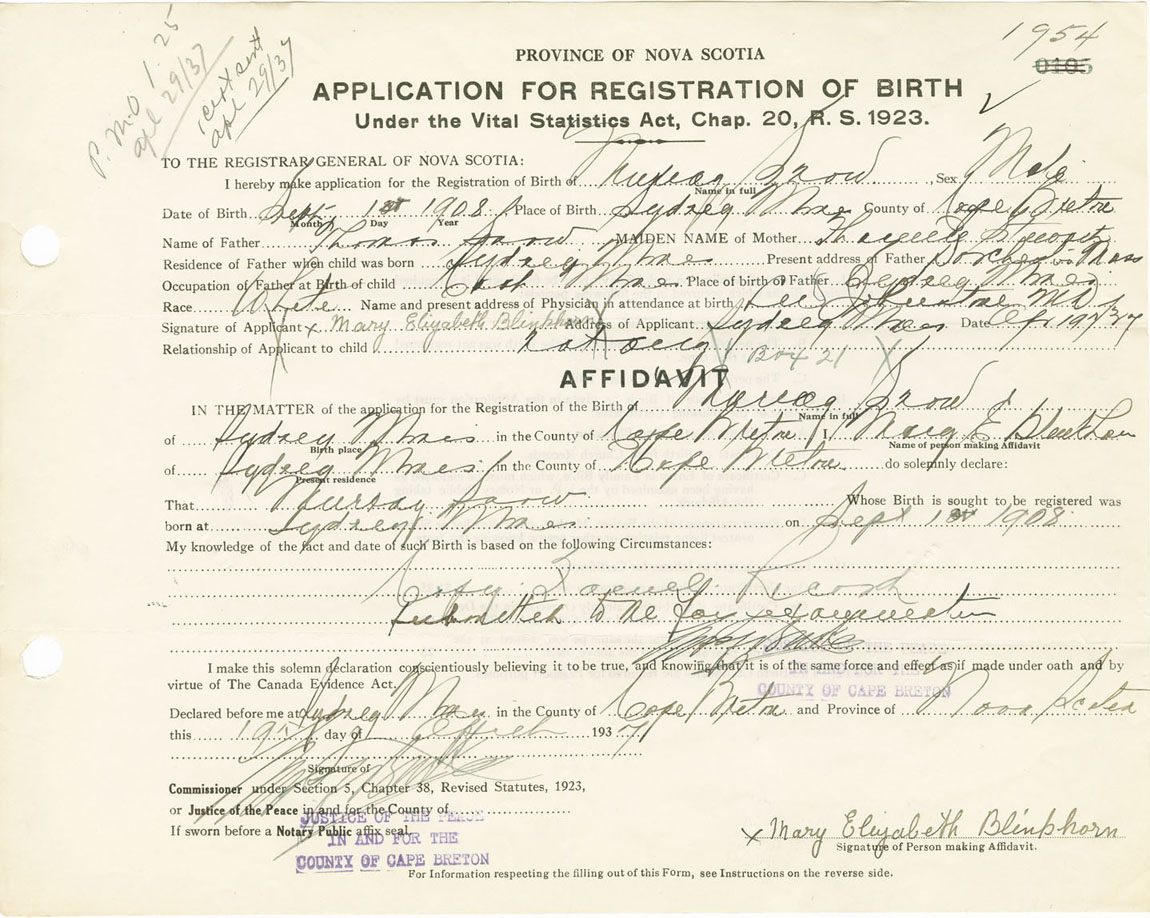 P. M.O 1.25
apl 29/37
cert sent
apl 29/37
1954
0105
PROVINCE OF NOVA SCOTIA
APPLICATION FOR REGISTRATION OF BIRTH
Under the Vital Statistics Act, Chap. 20, R. S. 1923.
TO THE REGISTRAR GENERAL OF NOVA SCOTIA:
I hereby make application for the Registration of Birth of Murray Snow, Sex Male
Name in full
Date of Birth Sept 1st 1908 Place of Birth Sydney Mines County of Cape Breton
Month Day Year
Name of Father Thomas Snow MAIDEN NAME of Mother
Residence of Father when child was born Sydney Mines Present address of Father Dorchester Mass
Occupation of Father at Birth of child Place of birth of Father Sydney Mines
Race White Name and present address of Physician in attendance at birth Johnstone MD
Signature of Applicant x Mary Elizabeth Blinkhorn Address of Applicant Sydney Mines Date Ap 19/37
Relationship of Applicant to child not any Box 21
AFFIDAVIT
IN THE MATTER of the application for the Registration of the Birth of Murray Snow
Name in full
of Sydney Mines in the County of Cape Breton I Mary E Blinkhorn
Birth place Name of person making Affidavit
of Sydney Mines in the County of Cape Breton do solemnly declare:
Present residence
That Murray Snow Whose Birth is sought to be registered was
born at Sydney Mines on Sept 1st 1908
My knowledge of the fact and date of such Birth is based on the following Circumstances:
Copy Family Record
submitted to me for examination
I make this solemn declaration conscientiously believing it to be true, and knowing that it is of the same force and effect as if made under oath and by
IN AND FOR THE
virtue of The Canada Evidence Act.
COUNTY OF CAPE BRETON
Declared before me at Sydney Mines in the County of Cape Breton and Province of Nova Scotia
this 19th day of April 1937
Signature of
Commissioner under Section 5, Chapter 38, Revised Statutes, 1923,
or Justice of the Peace in and for the County of
JUSTICE OF THE PEACE
If sworn before a Notary Public affix seal
IN AND FOR THE
COUNTY OF CAPE BRETON
x Mary Elizabeth Blinkhorn
Signature of Person making Affidavit.
For Information respecting the filling out of this Form, see Instructions on the reverse side.